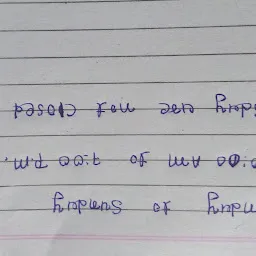 nday to Sunday
:00 AM to 7:00 P.M.
iday are not closed